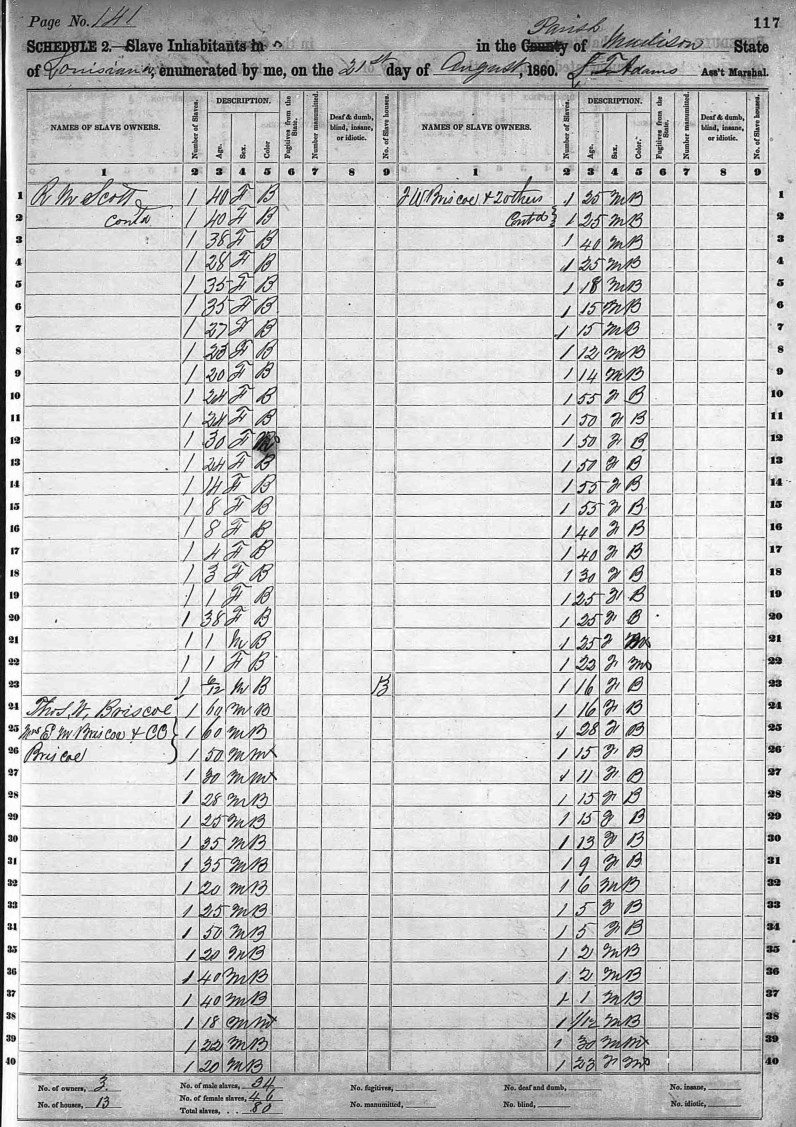 Page No. 141
117
SCHEDULE 2.—Slave Inhabitants in in the County Parish of Madison State
of Louisiana, enumerated by me, on the 21st day of August, 1860. Adams Ass't Marshal.
NAMES OF SLAVE OWNERS. Number of Slaves. DESCRIPTION. Age. Sex. Color Fugitives from the State. Number manumitted. Deaf & dumb, blind, insane, or idiotic. No. of Slave houses. NAMES OF SLAVE OWNERS. Number of Slaves. DESCRIPTION. Age. Sex. Color. Fugitives from the State. Number manumitted. Deaf & dumb, blind, insane, or idiotic. No. of Slave houses.
1 2 3 4 5 6 7 8 9 1 2 3 4 5 6 7 8 9
1 R M Scott 1 40 F B J W Briscoe & 2 others 1 25 M B 1
2 Contd 1 40 F B Contd 1 25 M B 2
3 1 38 F B 1 40 M B 3
4 1 28 F B 1 25 M B 4
5 1 35 F B 1 18 M B 5
6 1 35 F B 1 15 M B 6
7 1 27 F B 1 15 M B 7
8 1 23 F B 1 12 M B 8
9 1 20 F B 1 14 M B 9
10 1 24 F B 1 55 F B 10
11 1 24 F B 1 50 F B 11
12 1 30 F 1 50 F B 12
13 1 24 F B 1 50 F B 13
14 1 14 F B 1 55 F B 14
15 1 8 F B 1 55 F B 15
16 1 8 F B 1 40 F B 16
17 1 4 F B 1 40 F B 17
18 1 3 F B 1 30 F B 18
19 1 1 F B 1 25 F B 19
20 1 38 F B 1 25 F B 20
21 1 1 M B 1 25 F 21
22 1 1 F B 1 22 F M 22
23 1 6/12 M B 13 1 16 F B 23
24 Thos. W. Briscoe 1 60 M B 1 16 F B 24
25 Mrs E M Briscoe & CO 1 60 M B 1 28 F B 25
26 Briscoe 1 50 M M 1 15 F B 26
27 1 30 M M 1 11 F B 27
28 1 28 M B 1 15 F B 28
29 1 25 M B 1 15 F B 29
30 1 35 M B 1 13 F B 30
31 1 35 M B 1 9 F B 31
32 1 20 M B 1 6 M B 32
33 1 25 M B 1 5 F B 33
34 1 50 M B 1 5 F B 34
35 1 20 M B 1 2 M B 35
36 1 40 M B 1 2 M B 36
37 1 40 M B 1 1 M B 37
38 1 18 M M 1 1/12 M B 38
39 1 22 M B 1 30 M M 39
40 1 20 M B 1 23 F M 40
No. of owners, 3. No. of male slaves, 34 No. fugitives, No. deaf and dumb, No. insane,
No. of houses, 13 No. of female slaves, 46 No. manumitted, No. blind, No. idiotic,
Total slaves, 80